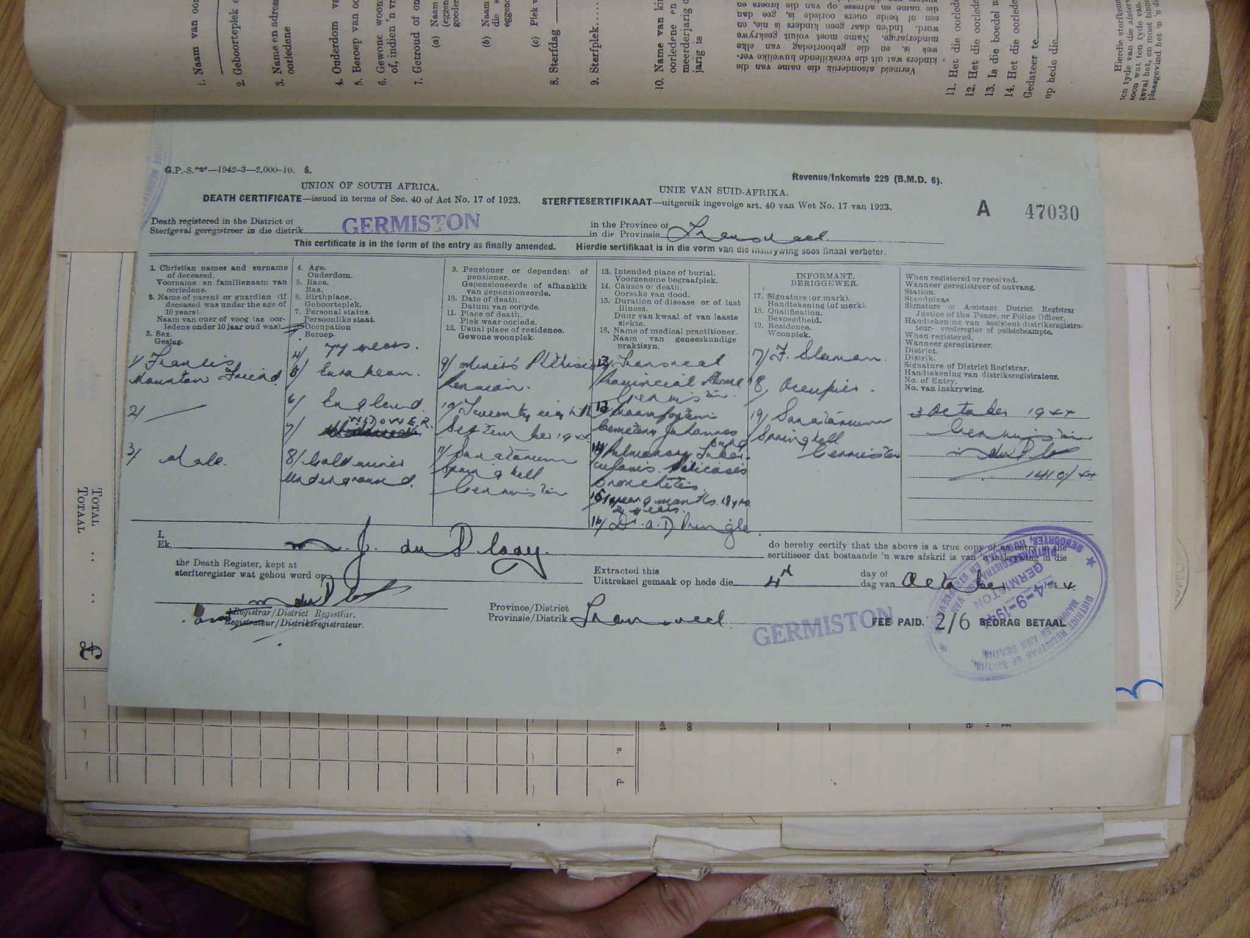 1. Naam van
2. Geboorteplek
3. Naam en adres
oorledene
4. Ouderdom
5. Beroep van
6. Gewone
of, indien 'n
7. Getroud of
(a) Naam
(b) Naam
die
(c) Plek
8. Sterfdag
9. Sterfplek
10. Name van
oorledene en
meerderjarig
jarig is
Vermeld afsonderlik die name van die
kinders wat uit die verskillende huwelike
wek is, en die geboortedag van elke
minderjarige. Name moet voluit geskrywe
word. Indien daar geen kinders is nie, en
een of beide ouers oorlede is, gee dan
die name en adresse van die broers en
11. Het die oorlede
12. Het die oorlede
13. Is die boedel
14. Het die oorlede
Gedateer te
op hede die
G.P.-S. —1942-3—2,000-10. S.
Revenue/Inkomste 229 (B.M.D. 6).
UNION OF SOUTH AFRICA.
UNIE VAN SUID-AFRIKA.
DEATH CERTIFICATE—issued in terms of Sec. 40 of Act No. 17 of 1923.
STERFTESERTIFIKAAT—uitgereik ingevolge art. 40 van Wet No. 17 van 1923.
A 47030
Death registered in the District of
Sterfgeval geregistreer in die distrik
GERMISTON
in the Province of
in die Provinsie
Transvaal
This certificate is in the form of the entry as finally amended. Hierdie sertifikaat is in die vorm van die inskrywing soos finaal verbeter.
1. Christian names and surname
of deceased.
Voorname en familienaam van
oorledene.
2. Name of parent or guardian (if
deceased was under the age of
10 years)
Naam van ouer of voog (as oor-
ledene onder 10 jaar oud was).
3. Sex.
Geslag.
4. Age.
Ouderdom.
5. Race.
Ras.
6. Birthplace.
Geboorteplek.
7. Personal status.
Persoonlike staat.
8. Occupation
Beroep.
9. Pensioner or dependent of
pensioner.
Gepensioeneerde of afhanklik
van gepensioeneerde.
10. Date of death.
Datum van oorlyde.
11. Place of death.
Plek waar oorlede.
12. Usual place of residence.
Gewone woonplek.
13. Intended place of burial.
Voorgenome begraafplek.
14. Causes of death.
Oorsake van dood.
15. Duration of disease or of last
illness.
Duur van kwaal of van laaste
siekte.
16. Name of medical practitioner.
Naam van geneeskundige
praktisyn.
INFORMANT.
BERIGGEWER.
17. Signature (or mark).
Handtekening (of merk).
18. Qualification.
Bevoegdheid.
19. Residence.
Woonplek.
When registered or received.
Wanneer geregistreer of ontvang.
Station.
Standplaas
Signature of Assistant District Registrar
Justice of the Peace, or Police Officer.
Handtekening van assistent distriksregistra-
teur- vrederegter of polisiebeampte.
When registered.
Wanneer geregistreer.
District.
Distrik.
Signature of District Registrar.
Handtekening van distriksregistrateur.
No. of Entry.
No. van inskrywing.
1/ Francis
Friend
2/ —
3/ Male.
4/ 77 years.
5/ European.
6/ England.
7/ WIDOWER.
8/ Gold miner
underground.
9/ Miners Phthisis
Pension.
10/ Twenty eighth
September 1944
11/ Sanatorium
Springkell
Germiston
12/ Transvaal
Provincial Home
Germiston.
13/ Braamfontein
Cemetery Johannes
burg
14/ Pulmonary Tuber
culosis. Silicosis
Bronchitis.
16/ Dr. A. D. Pringle
17/ F. Sleman.
18/ Occupier.
19/ Sanatorium
Springkell
Germiston
3 October 1944
Germiston
m du P
1410/44
I,
Ek,
M. J. du Plooy.
do hereby certify that the above is a true copy of an entry in the
sertifiseer dat bostaande 'n ware afskrif is van 'n inskrywing in die
the Death Register, kept at
sterfteregister wat gehou word op
Extracted this
Uittreksel gemaak op hede die
4th
day of
dag van
October
1944
Registrar/District Registrar.
Registrateur/Distriksregistrateur.
Province/District
Provinsie/Distrik
Transvaal
GERMISTON
FEE PAID. 2/6 BEDRAG BETAAL.
DISTRICT REGISTRAR OF BIRTHS, MARRIAGES AND DEATHS
GERMISTON
TOTAL
TOTAAL
£
s.
D.